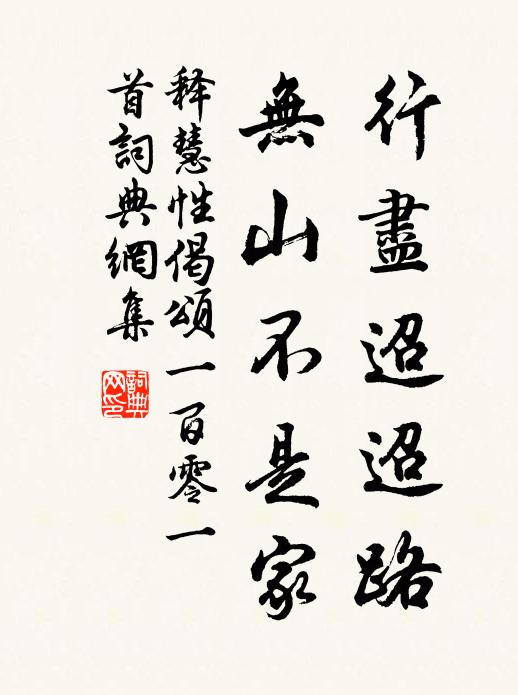 行盡迢迢路
無山不是家
释慧性偈頌一百零一
首詞典網集
詞典
网印